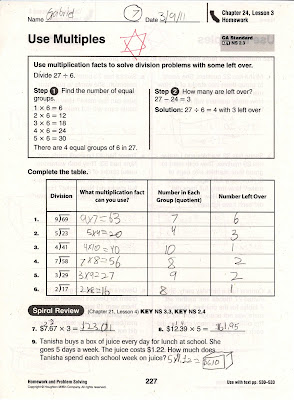 Name Date 3/9/11
7
Chapter 24, Lesson 3
Homework
Use Multiples
CA Standard
NS 2.3
Use multiplication facts to solve division problems with some left over.
Divide 27 ÷ 6.
Step 1 Find the number of equal groups.
1 × 6 = 6
2 × 6 = 12
3 × 6 = 18
4 × 6 = 24
5 × 6 = 30
There are 4 equal groups of 6 in 27.
Step 2 How many are left over?
27 − 24 = 3
Solution: 27 ÷ 6 = 4 with 3 left over
Complete the table.
Division What multiplication fact can you use? Number in Each Group (quotient) Number Left Over
1. 9)69 9x7=63 7 6
2. 5)23 5x4=20 4 3
3. 4)41 4x10=40 10 1
4. 7)58 7x8=56 8 2
5. 3)29 3x9=27 9 2
6. 2)17 2x8=16 8 1
Spiral Review (Chapter 21, Lesson 4) KEY NS 3.3, KEY NS 2.4
7. $7.67 × 3 = $23.01 8. $12.39 × 5 = $61.95
9. Tanisha buys a box of juice every day for lunch at school. She
goes 5 days a week. The juice costs $1.22. How much does
Tanisha spend each school week on juice? 5x1.22=$6.10
Homework and Problem Solving 227 Use with text pp. 530–533